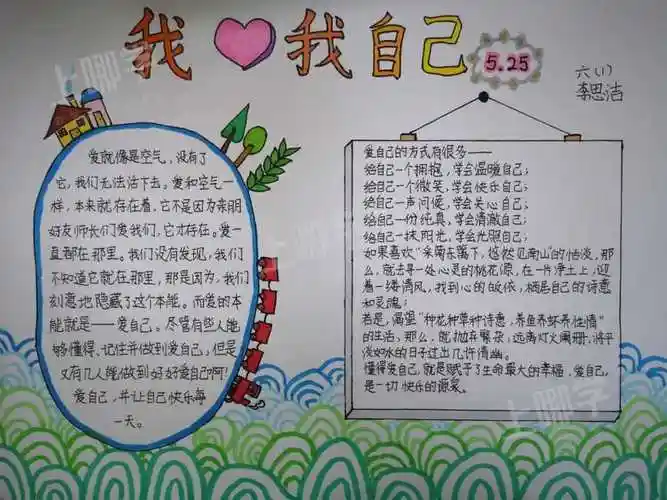 我 我自己
5.25
六(1)
李思洁
爱就像是空气，没有了
它，我们无法活下去。爱和空气一
样，本来就存在着，它不是因为亲朋
好友师长们爱我们，它才存在。爱一
直都在那里。我们没有发现，我们
不知道它就在那里，那是因为，我们
刻意地隐藏了这个本能。而爱的本
能就是——爱自己。尽管有些人能
够懂得、记住并做到爱自己，但是
又有几人能做到好好爱自己啊！
爱自己，并让自己快乐每
一天。
爱自己的方式有很多——
给自己一个拥抱，学会温暖自己；
给自己一个微笑，学会快乐自己；
给自己一声问候，学会关心自己；
给自己一份纯真，学会清澈自己；
给自己一抹阳光，学会光照自己；
如果喜欢“采菊东篱下，悠然见南山”的恬淡，那
么，就去寻一处心灵的桃花源，在一片净土上，迎
着一缕清风，找到心的皈依，栖居自己的诗意
和灵魂；
若是，渴望“种花种草种诗意，养鱼养虾养性情”
的生活，那么，就抛弃繁杂，远离灯火阑珊，将平
淡如水的日子过出几许清幽。
懂得爱自己，就是赋予了生命最大的幸福，爱自己，
是一切快乐的源泉。
上唧学
上唧学
上唧学